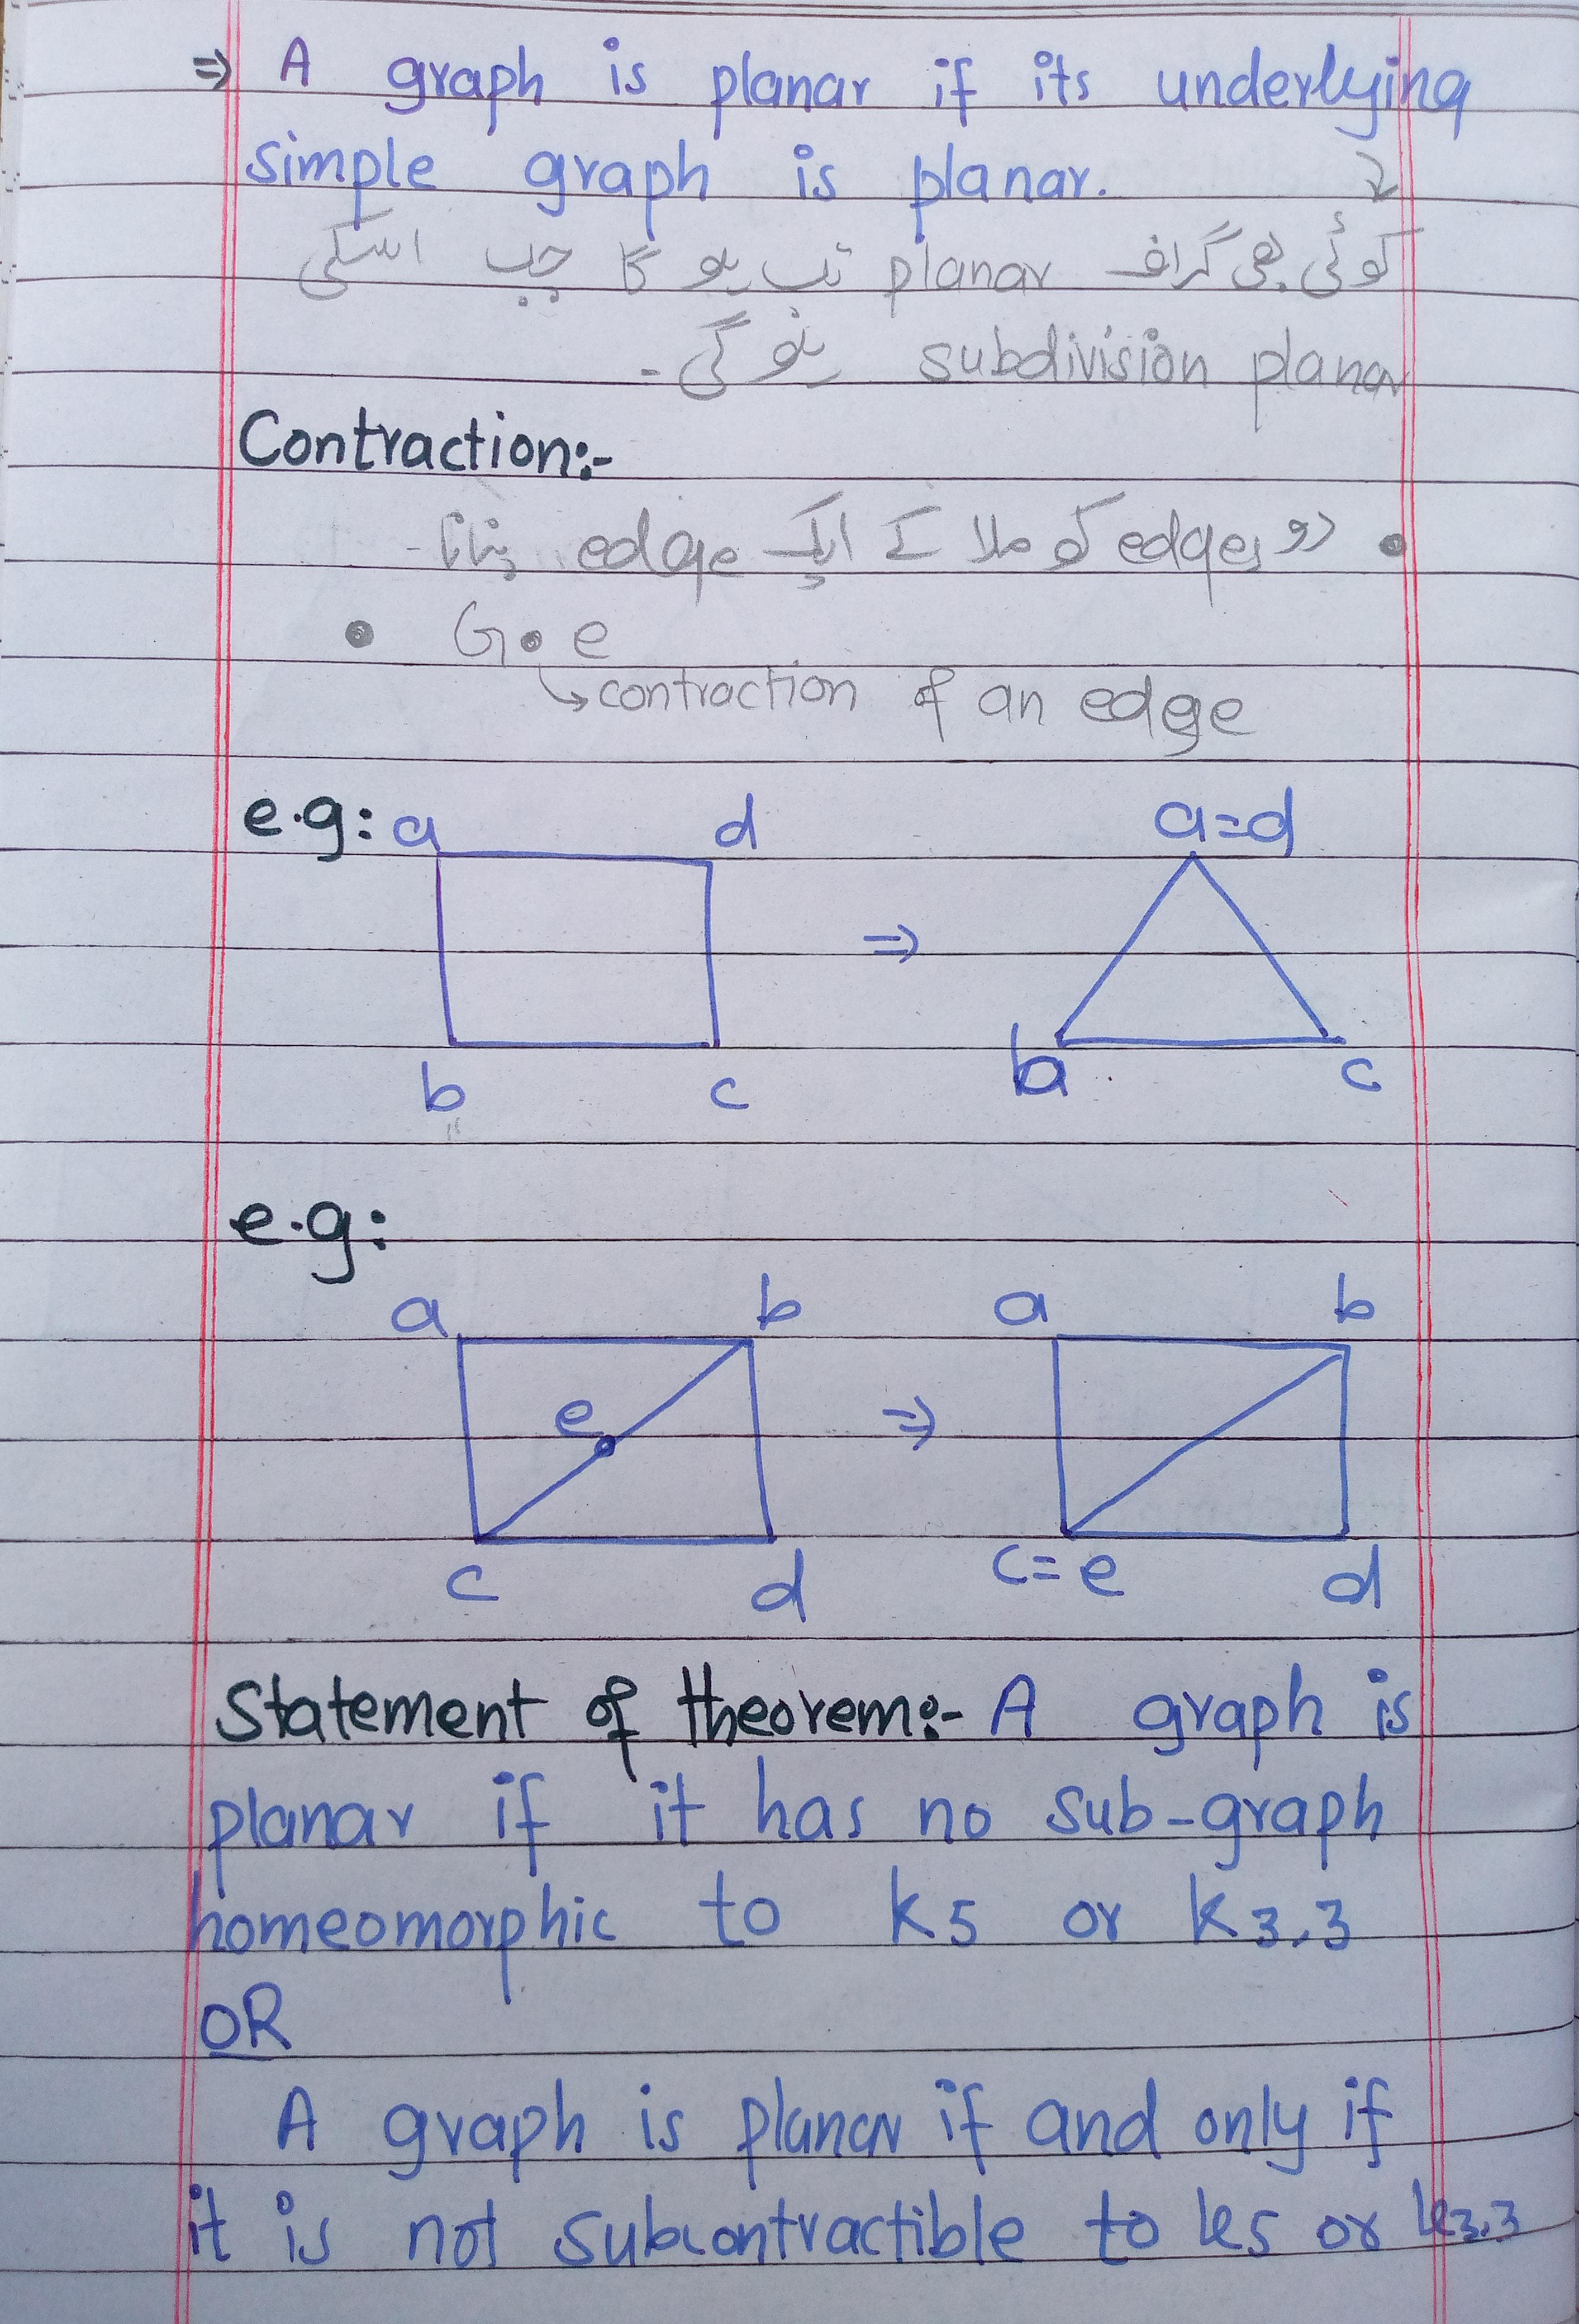 ⇒ A graph is planar if its underlying
simple graph is planar.
کوئی بھی گراف planar تب ہو گا جب اسکی
subdivision planar ہو گی۔
Contraction:-
• دو edges کو ملا کے ایک edge بنانا۔
• G•e
↳ contraction of an edge
e.g: a d a=d
⇒
b c b c
e.g:
a b a b
e ⇒
c d c=e d
Statement of theorem:- A graph is
planar if it has no sub-graph
homeomorphic to K5 or K3,3
OR
A graph is planar if and only if
it is not subcontractible to K5 or K3,3